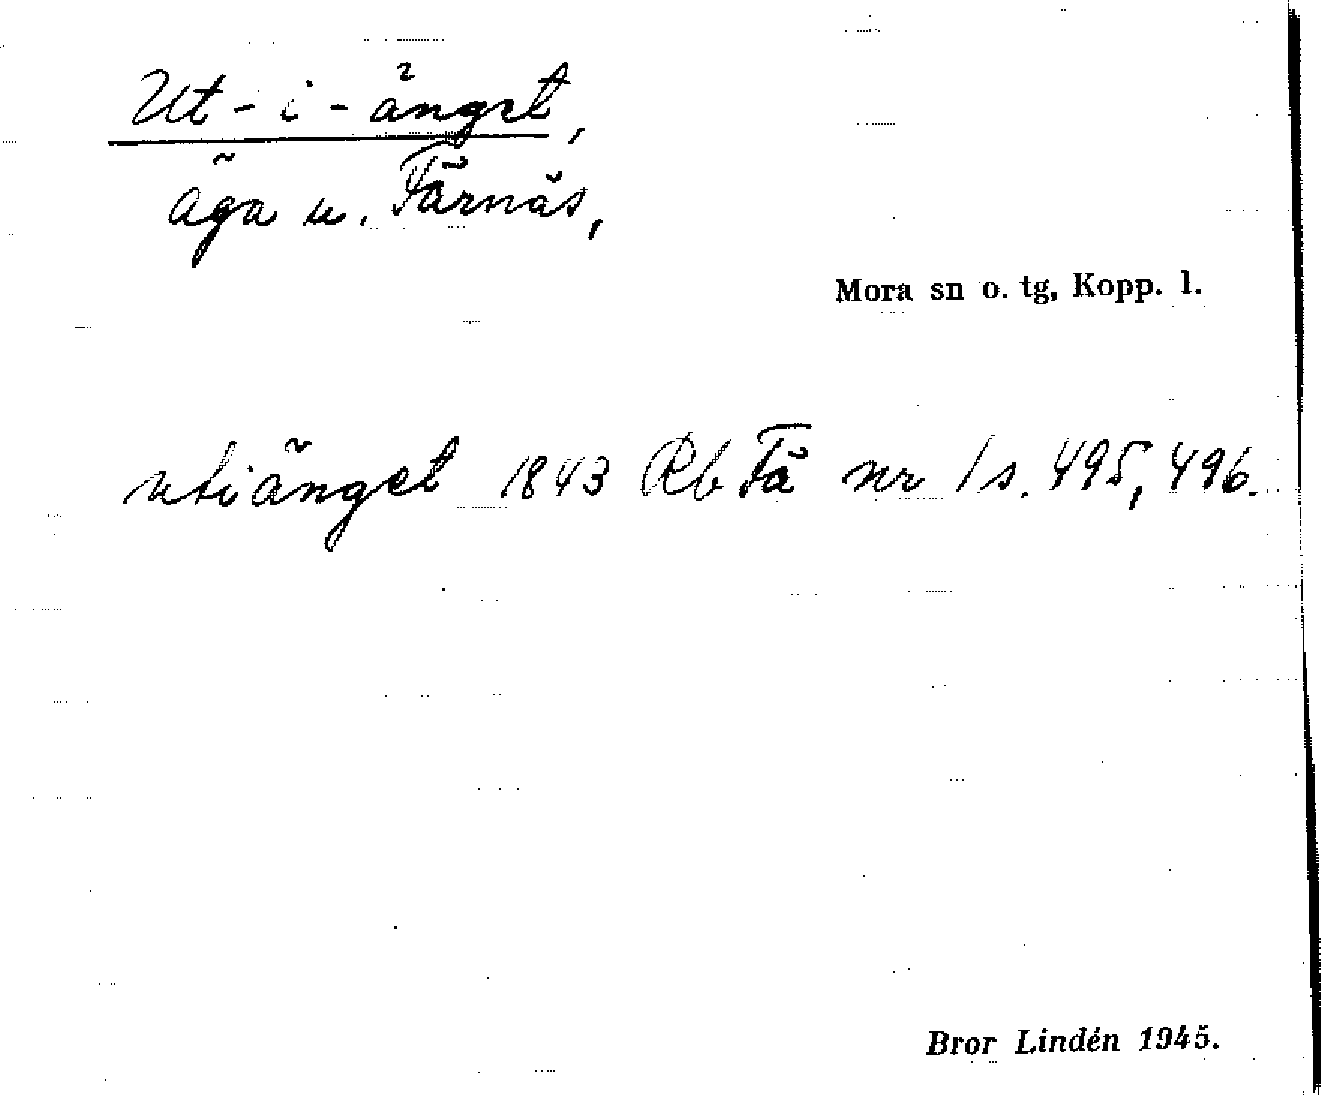 Ut-i-änget,
äga u. Färnäs,
Mora sn o. tg, Kopp. l.
utiänget 1843 Rb Fä nr 1 s. 495, 496.
Bror Lindén 1945.